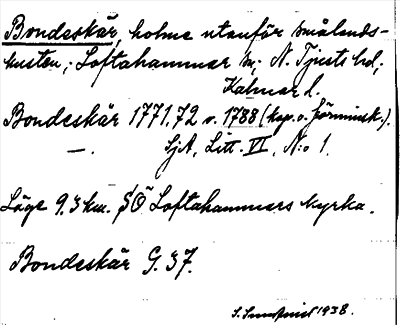 Bondeskär, holme utanför smålands-
kusten, Loftahammar sn, N. Tjusts hd,
Kalmar l.
Bondeskär 1771.72 o. 1788 (kop. o. förminsk.).
—. SjA, Litt. VI, N:o 1.
Läge 9.3 km. SÖ Loftahammars kyrka.
Bondeskär G. 37.
S. Sundqvist 1938.